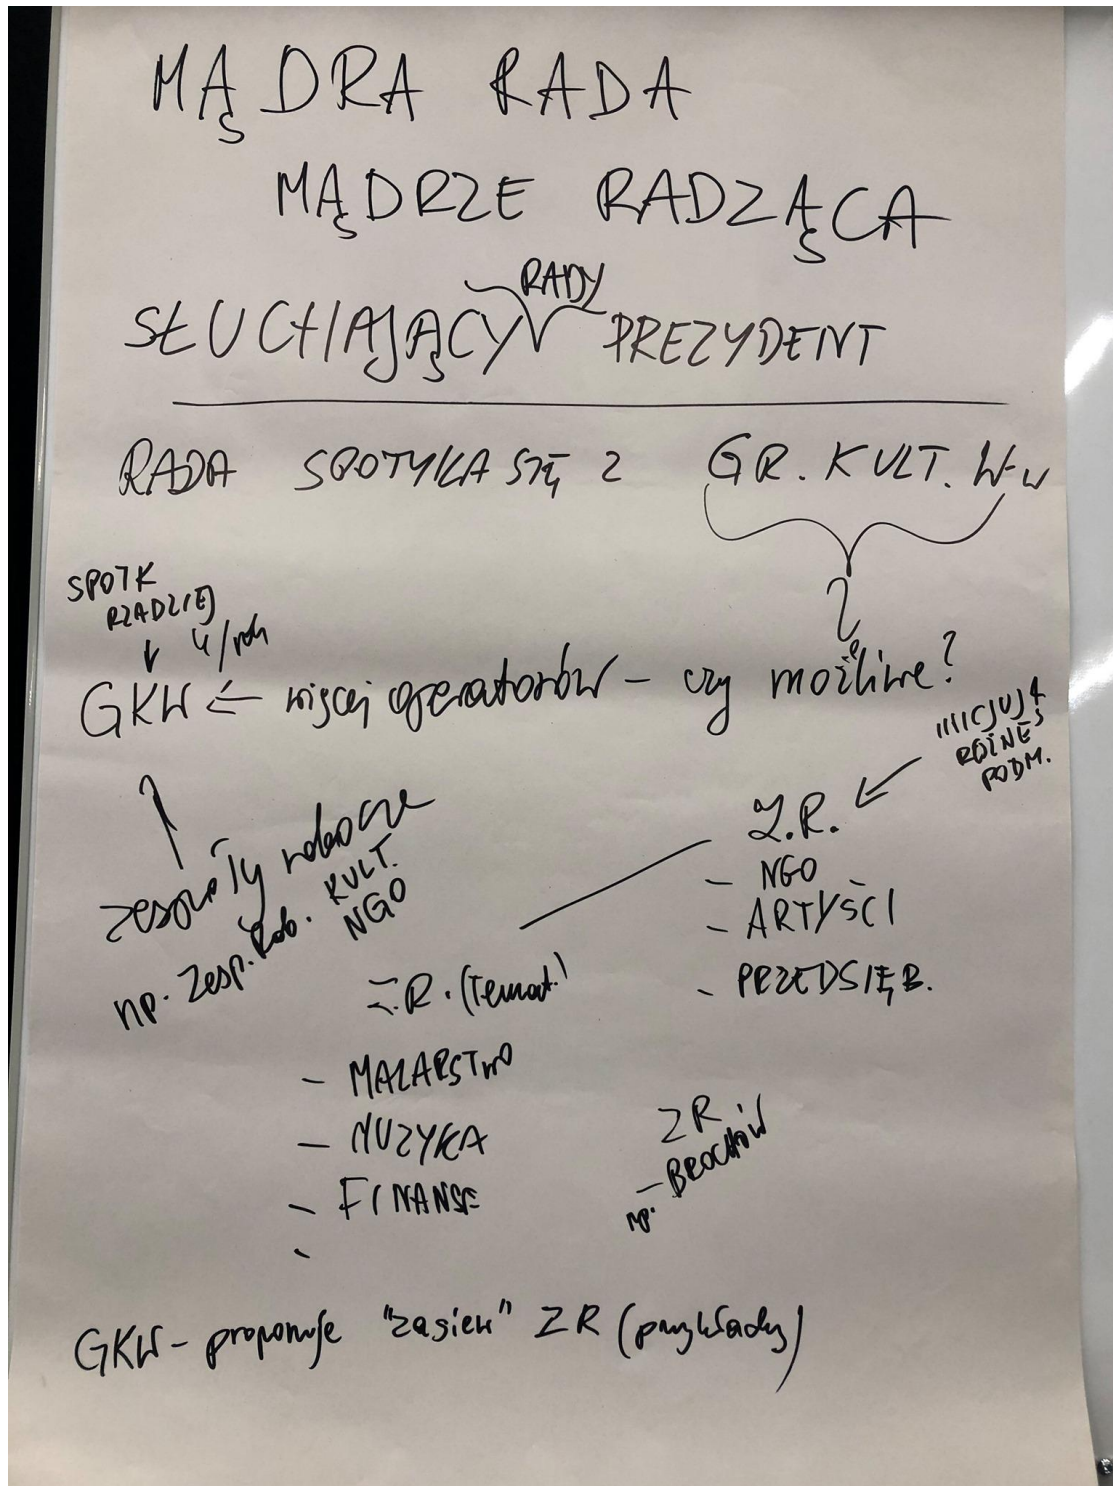 MĄDRA RADA
MĄDRZE RADZĄCA
RADY
SŁUCHAJĄCY PREZYDENT
RADA SPOTYKA SIĘ Z GR. KULT. W-W
SPOTK
RZADZIEJ
4/rok
GKW ← więcej operatorów – czy możliwe?
INICJUJĄ
RÓŻNE
PODM.
zespoły robocze
np. Zesp. Rob. KULT.
NGO
Z.R.
- NGO
- ARTYŚCI
- PRZEDSIĘB.
Z.R. (temat.)
- MALARSTWO
- MUZYKA
- FINANSE
-
ZR
np. - BROCHÓW
GKW – proponuje "zasiew" ZR (przykłady)